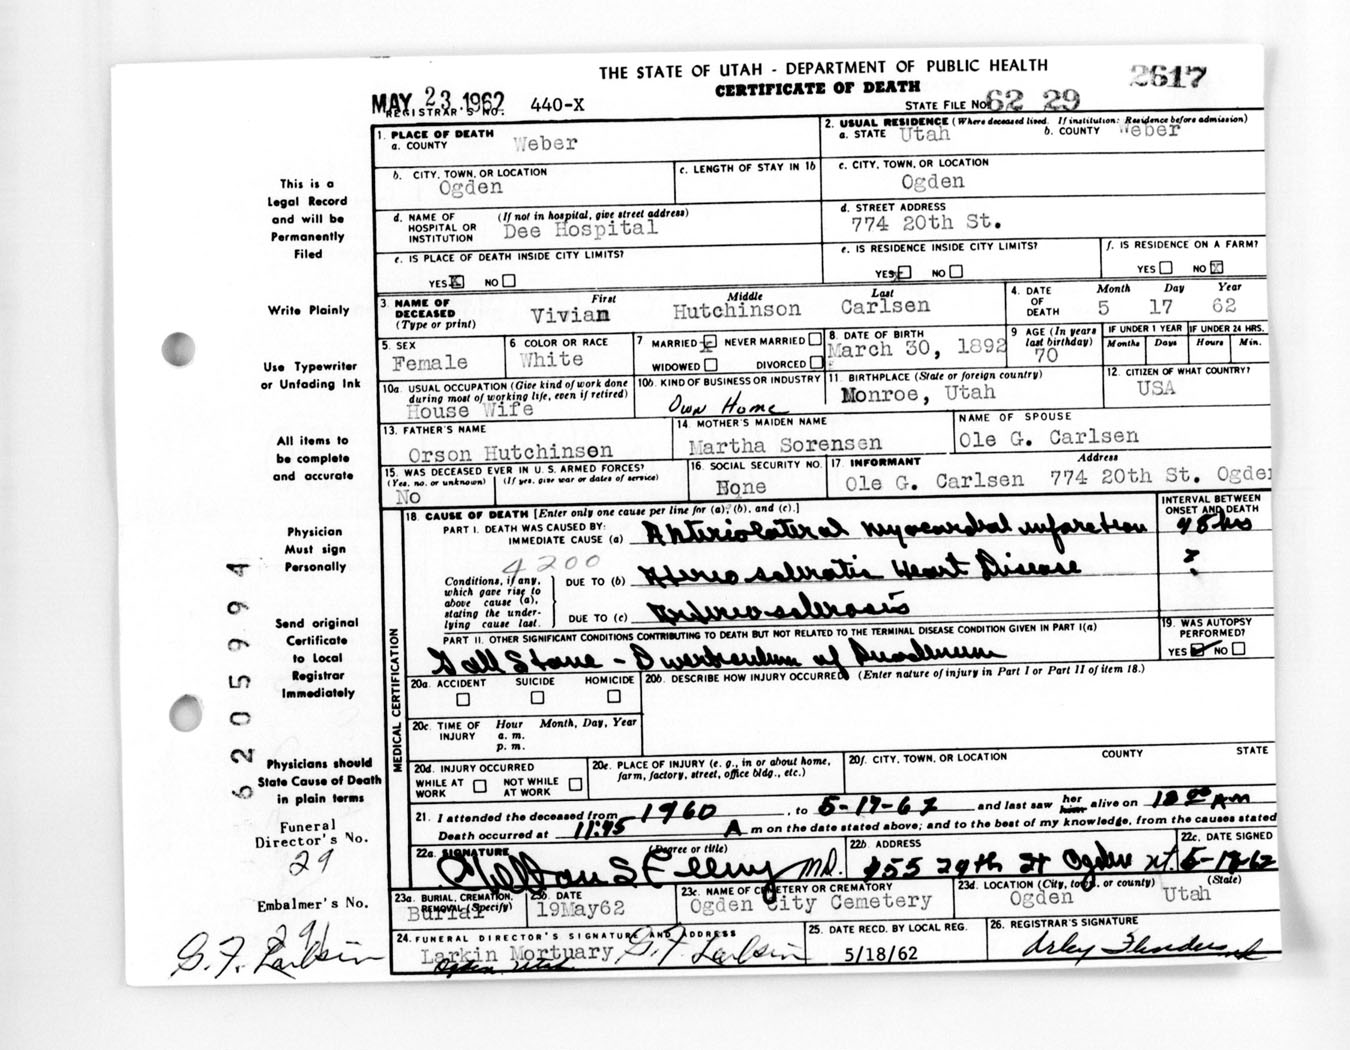 THE STATE OF UTAH - DEPARTMENT OF PUBLIC HEALTH
2617
CERTIFICATE OF DEATH
MAY 23 1962 440-X
REGISTRAR'S NO.
STATE FILE NO. 62 29
1. PLACE OF DEATH
a. COUNTY Weber
2. USUAL RESIDENCE (Where deceased lived. If institution: Residence before admission)
a. STATE Utah b. COUNTY Weber
b. CITY, TOWN, OR LOCATION
Ogden
c. LENGTH OF STAY IN 1b
c. CITY, TOWN, OR LOCATION
Ogden
d. NAME OF HOSPITAL OR INSTITUTION (If not in hospital, give street address)
Dee Hospital
d. STREET ADDRESS
774 20th St.
e. IS PLACE OF DEATH INSIDE CITY LIMITS?
YES X NO
e. IS RESIDENCE INSIDE CITY LIMITS?
YES NO
f. IS RESIDENCE ON A FARM?
YES NO X
3. NAME OF DECEASED (Type or print)
First Middle Last
Vivian Hutchinson Carlsen
4. DATE OF DEATH
Month Day Year
5 17 62
5. SEX
Female
6 COLOR OR RACE
White
7 MARRIED NEVER MARRIED
WIDOWED DIVORCED
8. DATE OF BIRTH
March 30, 1892
9 AGE (In years last birthday)
70
IF UNDER 1 YEAR
Months Days
IF UNDER 24 HRS.
Hours Min.
10a. USUAL OCCUPATION (Give kind of work done during most of working life, even if retired)
House Wife
10b. KIND OF BUSINESS OR INDUSTRY
Own Home
11. BIRTHPLACE (State or foreign country)
Monroe, Utah
12. CITIZEN OF WHAT COUNTRY?
USA
13. FATHER'S NAME
Orson Hutchinson
14. MOTHER'S MAIDEN NAME
Martha Sorensen
NAME OF SPOUSE
Ole G. Carlsen
15. WAS DECEASED EVER IN U. S. ARMED FORCES?
(Yes, no, or unknown) (If yes, give war or dates of service)
No
16. SOCIAL SECURITY NO.
None
17. INFORMANT Address
Ole G. Carlsen 774 20th St. Ogden
18. CAUSE OF DEATH [Enter only one cause per line for (a), (b), and (c).]
INTERVAL BETWEEN ONSET AND DEATH
PART I. DEATH WAS CAUSED BY:
IMMEDIATE CAUSE (a) Anteriolateral myocardial infarction 48 hrs
4200
Conditions, if any, which gave rise to above cause (a), stating the underlying cause last.
DUE TO (b) Aterio sclerotic Heart Disease ?
DUE TO (c) Arteriosclerosis
PART II. OTHER SIGNIFICANT CONDITIONS CONTRIBUTING TO DEATH BUT NOT RELATED TO THE TERMINAL DISEASE CONDITION GIVEN IN PART I(a)
Gall Stone - Diverticulum of Duodenum
19. WAS AUTOPSY PERFORMED?
YES NO
MEDICAL CERTIFICATION
20a. ACCIDENT SUICIDE HOMICIDE
20b. DESCRIBE HOW INJURY OCCURRED (Enter nature of injury in Part I or Part II of item 18.)
20c. TIME OF INJURY Hour Month, Day, Year
a. m.
p. m.
20d. INJURY OCCURRED
WHILE AT WORK NOT WHILE AT WORK
20e. PLACE OF INJURY (e. g., in or about home, farm, factory, street, office bldg., etc.)
20f. CITY, TOWN, OR LOCATION COUNTY STATE
21. I attended the deceased from 1960, to 5-17-62 and last saw her him alive on
Death occurred at 11:45 A m on the date stated above; and to the best of my knowledge, from the causes stated
22a. SIGNATURE (Degree or title)
M.D.
22b. ADDRESS
955 29th St Ogden Ut.
22c. DATE SIGNED
5-18-62
23a. BURIAL, CREMATION, REMOVAL (Specify)
Burial
23b. DATE
19May62
23c. NAME OF CEMETERY OR CREMATORY
Ogden City Cemetery
23d. LOCATION (City, town, or county) (State)
Ogden Utah
24. FUNERAL DIRECTOR'S SIGNATURE AND ADDRESS
Larkin Mortuary G. F. Larkin
Ogden, Utah
25. DATE RECD. BY LOCAL REG.
5/18/62
26. REGISTRAR'S SIGNATURE
This is a
Legal Record
and will be
Permanently
Filed
Write Plainly
Use Typewriter
or Unfading Ink
All items to
be complete
and accurate
Physician
Must sign
Personally
Send original
Certificate
to Local
Registrar
Immediately
Physicians should
State Cause of Death
in plain terms
Funeral
Director's No.
29
Embalmer's No.
291
G. F. Larkin
62059 94